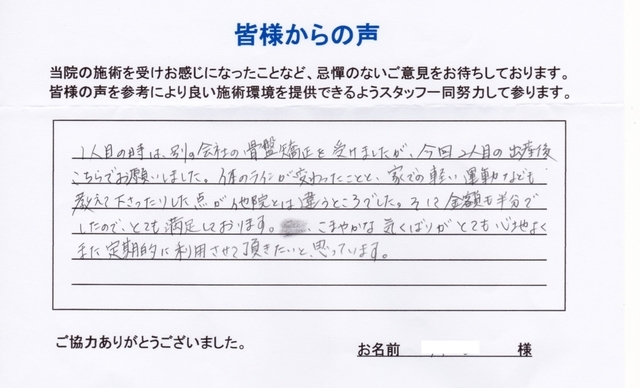 皆様からの声
当院の施術を受けお感じになったことなど、忌憚のないご意見をお待ちしております。
皆様の声を参考により良い施術環境を提供できるようスタッフ一同努力して参ります。
1人目の時は、別の会社の骨盤矯正を受けましたが、今回2人目の出産後
こちらでお願いしました。体のラインが変わったことと、家での軽い運動なども
教えて下さったりした点が他院とは違うところでした。そして金額も半分で
したので、とても満足しております。 、こまやかな気くばりがとても心地よく
また定期的に利用させて頂きたいと思っています。
ご協力ありがとうございました。
お名前 様